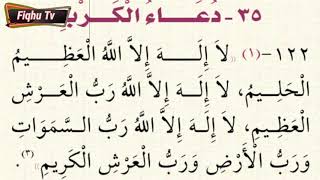 Fiqhu Tv
٣٥- دُعَاءُ الْكَرْبِ
١٢٢-(١) لاَ إِلَـــهَ إِلاَّ اللَّهُ الْعَظِـــيمُ
الْحَلِـيمُ، لاَ إِلَـهَ إِلاَّ اللَّهُ رَبُّ الْعَـرْشِ
الْعَظِيمِ، لاَ إِلَـهَ إِلاَّ اللَّهُ رَبُّ السَّمَوَاتِ
وَرَبُّ الْأَرْضِ وَرَبُّ الْعَرْشِ الْكَرِيمِ (٣).